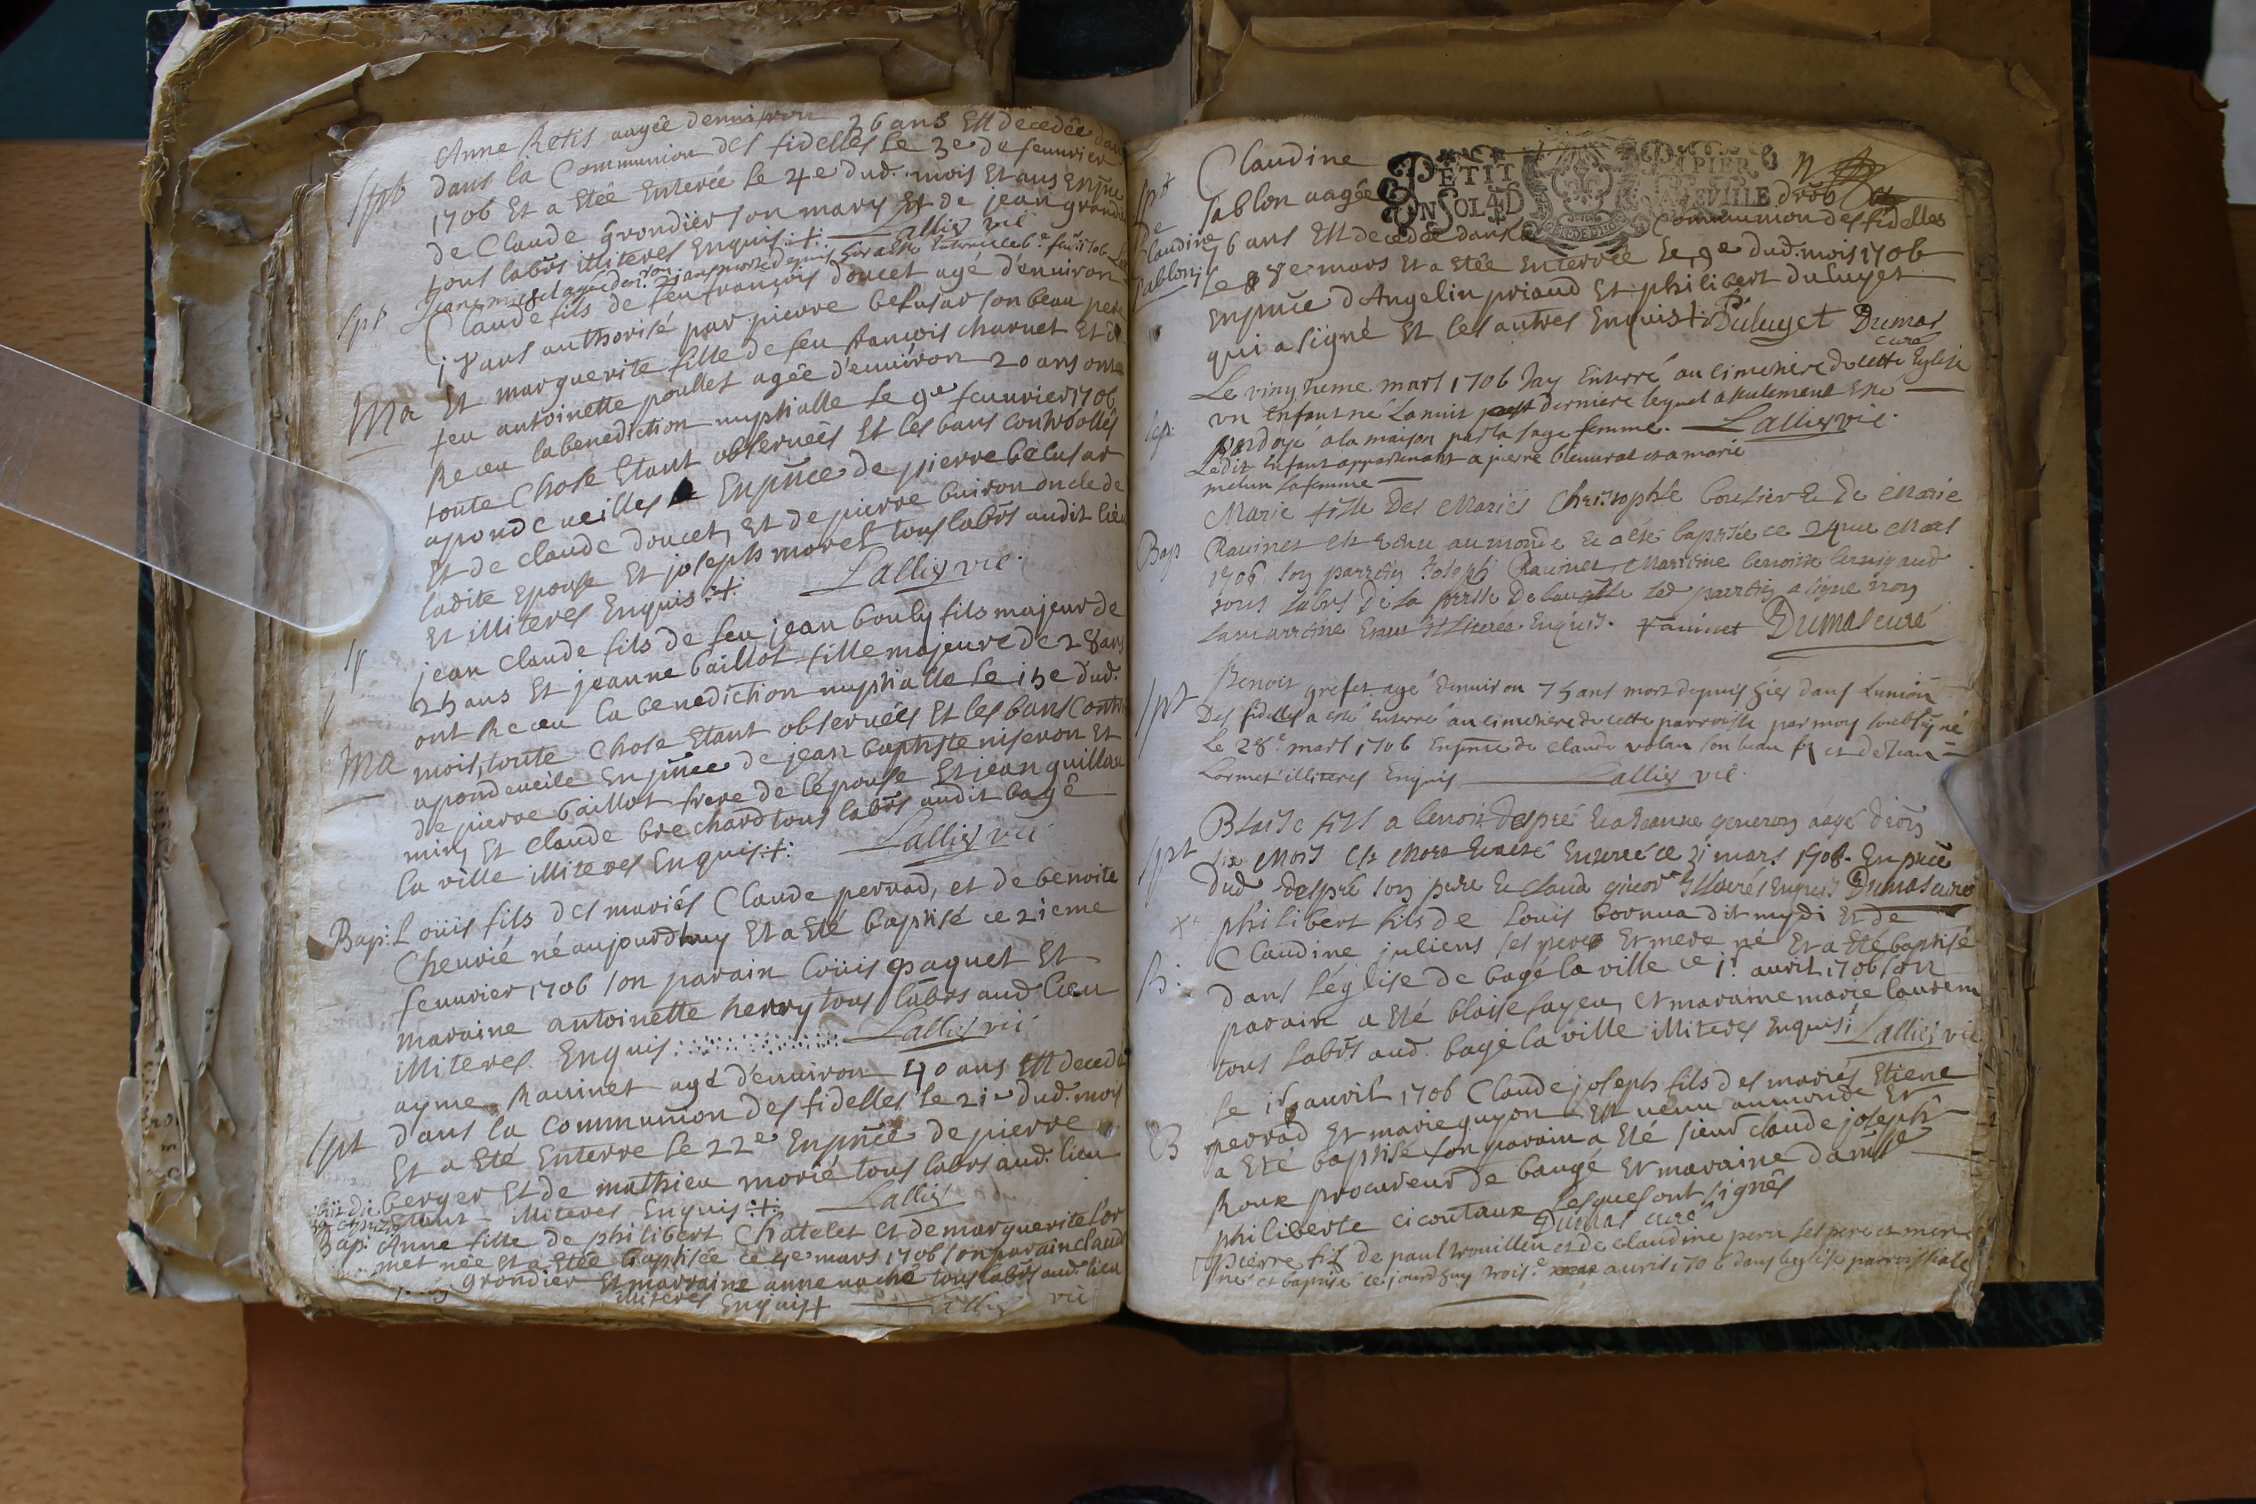 Anne Retis aagée d'enuiron 26 ans Est decedée dans
dans la Communion des fidelles le 3e de feuurier
Spt
1706 Et a Etée Enterée le 4e dud. mois Et ans Enpñce
de Claude Grondier son mary Et de jean grandi
tous labrs illiteres Enquis Lallis vic
Spt
Claude fils de feu françois doucet agé d'enuiron
18 ans authorisé par pierre belusar son beau pere
Ma
Et marguerite fille de feu françois charuet Et de
feu antoinette poullet agée d'enuiron 20 ans ont
Receu la benediction nuptialle le 9e feuurier 1706
toute Chose Etant obseruées Et les bans controollés
apondeueilles Enpñce de pierre belusar
Et de claude doucet, Et de pierre buiron oncle de
ladite Epouse Et joseph morel tous labrs audit lieu
Et illiteres Enquis Lallis vic
jean Claude fils de feu jean bouly fils majeur de
25 ans Et jeanne baillot fille majeure de 28 ans
ont Receu la benediction nuptialle le 15e dud.
Ma
mois, toute Chose Etant obseruées Et les bans contr
apondeueile Enpñce de jean baptiste niseron Et
de pierre baillot frere de lépouse Et jean guillau
min, Et claude brechard tous labrs audit bagé
la ville illiteres Enquis Lallis vic
Bap: Loüis fils des mariés Claude perrad, et de benoite
Cheurié né aujourdhuy Et a Eté baptisé ce 21eme
feuurier 1706 son parain Loüis paquet Et
maraine antoinette henry tous labrs aud. lieu
illiteres Enquis: Lallis vic
ayme Rauinet agé d'enuiron 40 ans Est decedé
Spt
dans la Communion des fidelles le 21e dud. mois
Et a Eté Enterre le 22e Enpñce de pierre
berger Et de mathieu morié tous labrs aud. lieu
illiteres Enquis Lallis
Bap: Anne fille de philibert Chatelet et de marguerite Cor
met née Et a Etée baptisée ce 4e mars 1706 son parain claud
grondier Et marraine anne uaché tous labrs aud. lieu
illiteres Enquis Lallis vic
Spt
de
Claudine
Sablon
Claudine
PETIT PAPIER
sablon aagée
EN SOL 4 D
76 ans Est decedée dans la Communion des fidelles
le 8e mars Et a Etée Enterrée le 9e dud. mois 1706
Enpñce d'Angelin priaud Et philibert duluyet
qui a signé Et les autres Enquis P. Duluyet Dumas
curé
Le vingtieme mars 1706 Jay Enterré au cimetiere de cette Eglise
Sep:
vn Enfant né La nuit derniere lequel a seulement Esté
ondoyé a la maison par la sage femme. Lallis vic.
Ledit Enfant appartenant a pierre bleuurat et a marie
melun sa femme
Marie fille Des Mariés Christophle boulier & De Marie
Bap
Rauinet est venue au monde & a été baptisée ce 24me Mars
1706 son parrein Joseph Rauinet, Marreine benoite bernigaud
tous labrs De la ledt parrein a signé non
la marreine Estant Illiteree Enquis. rauinet Dumas curé
Benoit grefet agé denuiron 75 ans mort depuis hier dans Lunion
Spt
Des fidelles a esté Enterré au cimetiere de cette parroisse par moy soubsigné
Le 28e mars 1706 Enpñce de Claude volan son beau fr et de Jean
Cormet illiteres Enquis Lallis vic.
Blaise fils a benoit despré & a Jeanne generon aagé d'eñon
Spt
six Mois Est Mort & a été Enterré ce 31 mars 1706. Enpñce
Dud despré son pere & Claud Illiterés Enquis Dumas curé
philibert fils de Louis bornua dit mydi Et de
Claudine juliens ses pere Et mere né Et a Eté baptisé
B:
dans l'église de bagé la ville ce 1r. auril 1706 son
parain a Eté blaise fayeu, et maraine marie laurent
tous labrs aud. bagé la ville illiteres Enquis Lallis vic
le 1r auril 1706 Claude joseph fils des mariés Etiene
B
perrad Et marie guyon Est uenu au monde Et
a Eté baptisé son parain a Eté sieur claude joseph
Roux procureur de baugé Et maraine damlle
philiberte cicontaux lesquels ont signés
Dumas curé
Pierre fils de paul trouilleu et de claudine peru ses pere et mere
né et baptisé ce jourdhuy trois.e auril 1706 dans leglise parroissialle